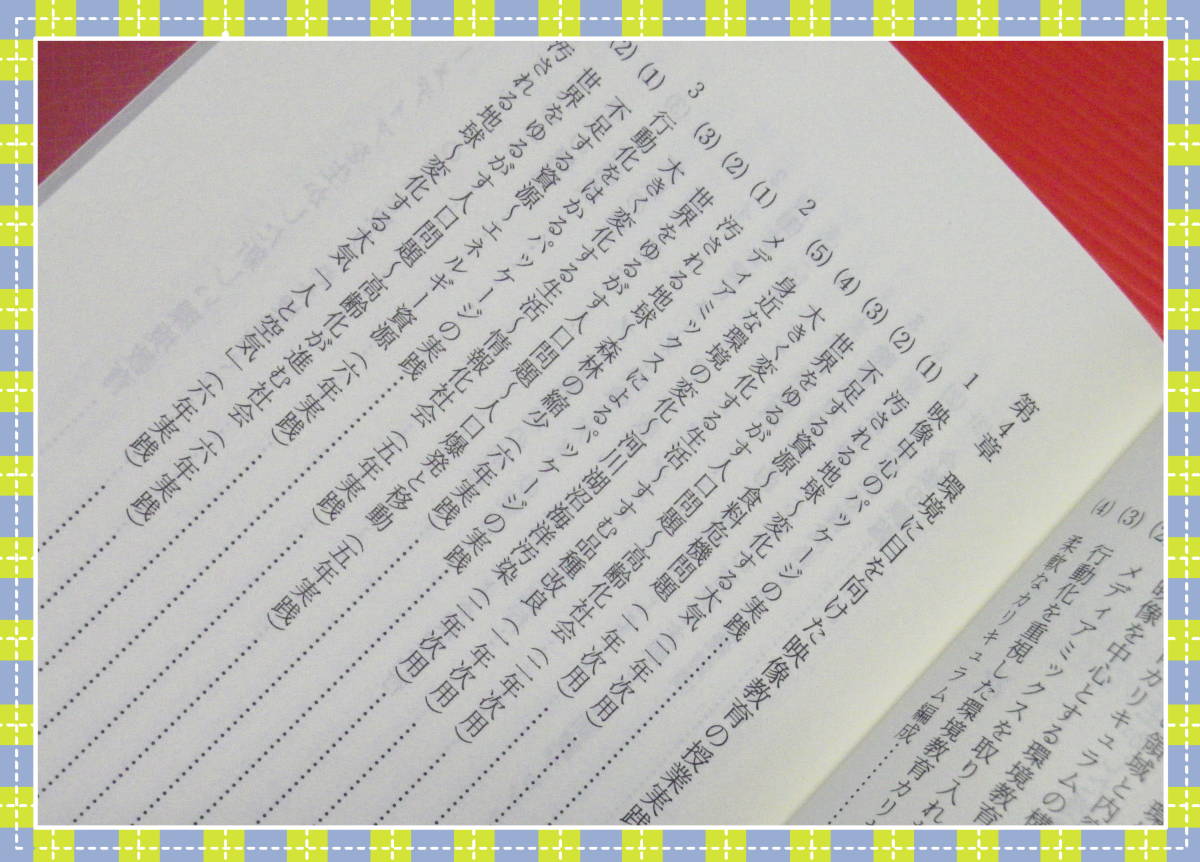 映像を中心とする環境教育
(3) メディアミックスを取り入れ
(4) 行動化を重視した環境教育カリ
柔軟なカリキュラム編成
第4章 環境に目を向けた映像教育の授業実践
1 映像中心のパッケージの実践
(1) 汚される地球〜変化する大気 (二年次用)
(2) 不足する資源〜食料危機問題 (二年次用)
(3) 世界をゆるがす人口問題〜高齢化社会 (二年次用)
(4) 大きく変化する生活〜すすむ品種改良 (二年次用)
(5) 身近な環境の変化〜河川湖沼海洋汚染 (二年次用)
2 メディアミックスによるパッケージの実践
(1) 汚される地球〜森林の縮少 (六年実践)
(2) 世界をゆるがす人口問題〜人口爆発と移動 (五年実践)
(3) 大きく変化する生活〜情報化社会 (五年実践)
3 行動化をはかるパッケージの実践
(1) 不足する資源〜エネルギー資源 (六年実践)
(2) 世界をゆるがす人口問題〜高齢化が進む社会 (六年実践)
汚される地球〜変化する大気「人と空気」 (六年実践)